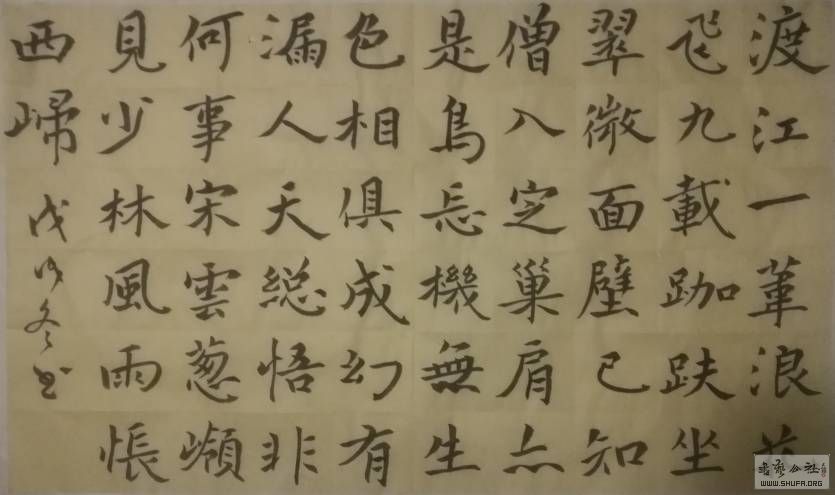 渡江一葦浪
飛九載跏趺坐
翠微面壁已知
僧入定巢肩亦
是鳥忘機無生
色相俱成幻有
漏人天総悟非
何事宋雲葱嶺
見少林風雨悵
西歸
戊戌冬书
书艺公社
WWW.SHUFA.ORG